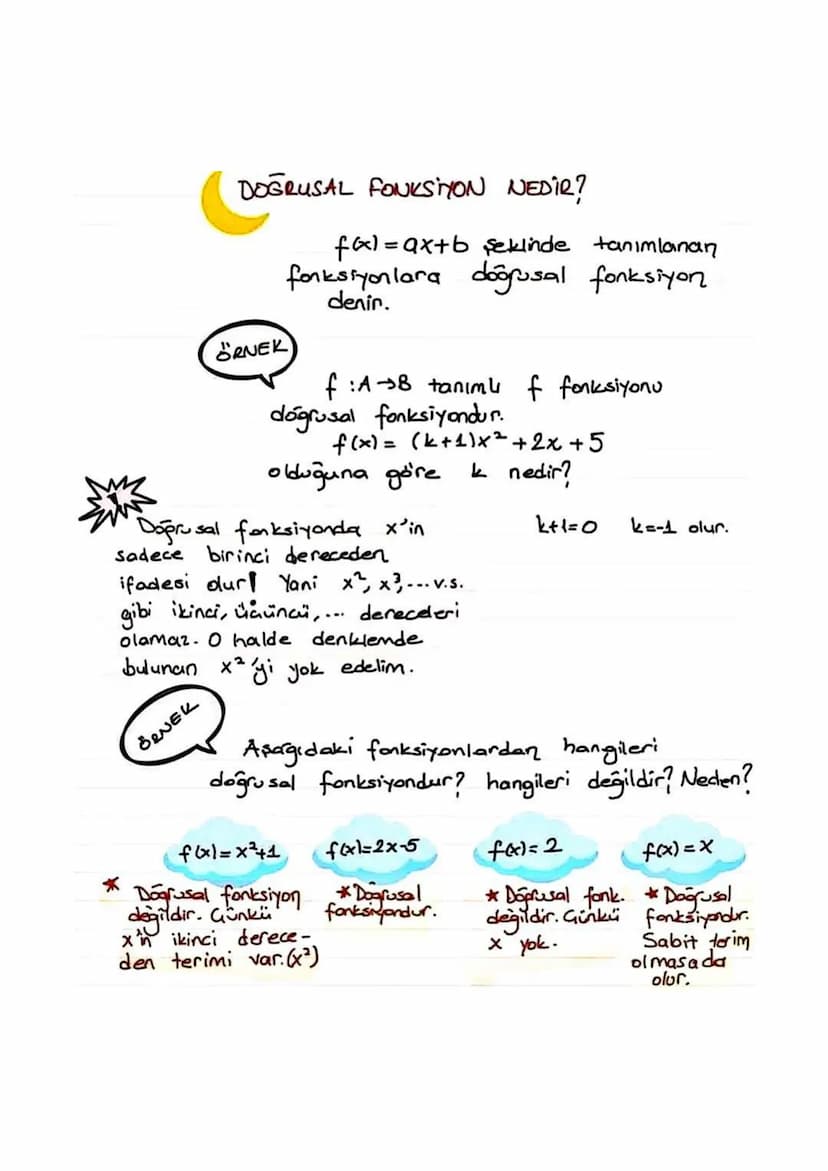 DOĞRUSAL FONKSİYON NEDİR?
f(x) = ax+b şeklinde tanımlanan
fonksiyonlara doğrusal fonksiyon
denir.
ÖRNEK
f : A→B tanımlı f fonksiyonu
doğrusal fonksiyondur.
f(x) = (k+1)x² + 2x + 5
olduğuna göre k nedir?
!
Doğrusal fonksiyonda x'in
sadece birinci dereceden
ifadesi olur! Yani x², x³,... v.s.
gibi ikinci, üçüncü, ... dereceleri
olamaz. O halde denklemde
bulunan x²'yi yok edelim.
k+1=0 k=-1 olur.
ÖRNEK
Aşağıdaki fonksiyonlardan hangileri
doğrusal fonksiyondur? hangileri değildir? Neden?
f(x) = x²+1
* Doğrusal fonksiyon
değildir. Çünkü
x'in ikinci derece-
den terimi var. (x²)
f(x)=2x-5
* Doğrusal
fonksiyondur.
f(x) = 2
* Doğrusal fonk.
değildir. Çünkü
x yok.
f(x) = x
* Doğrusal
fonksiyondur.
Sabit terim
olmasada
olur.